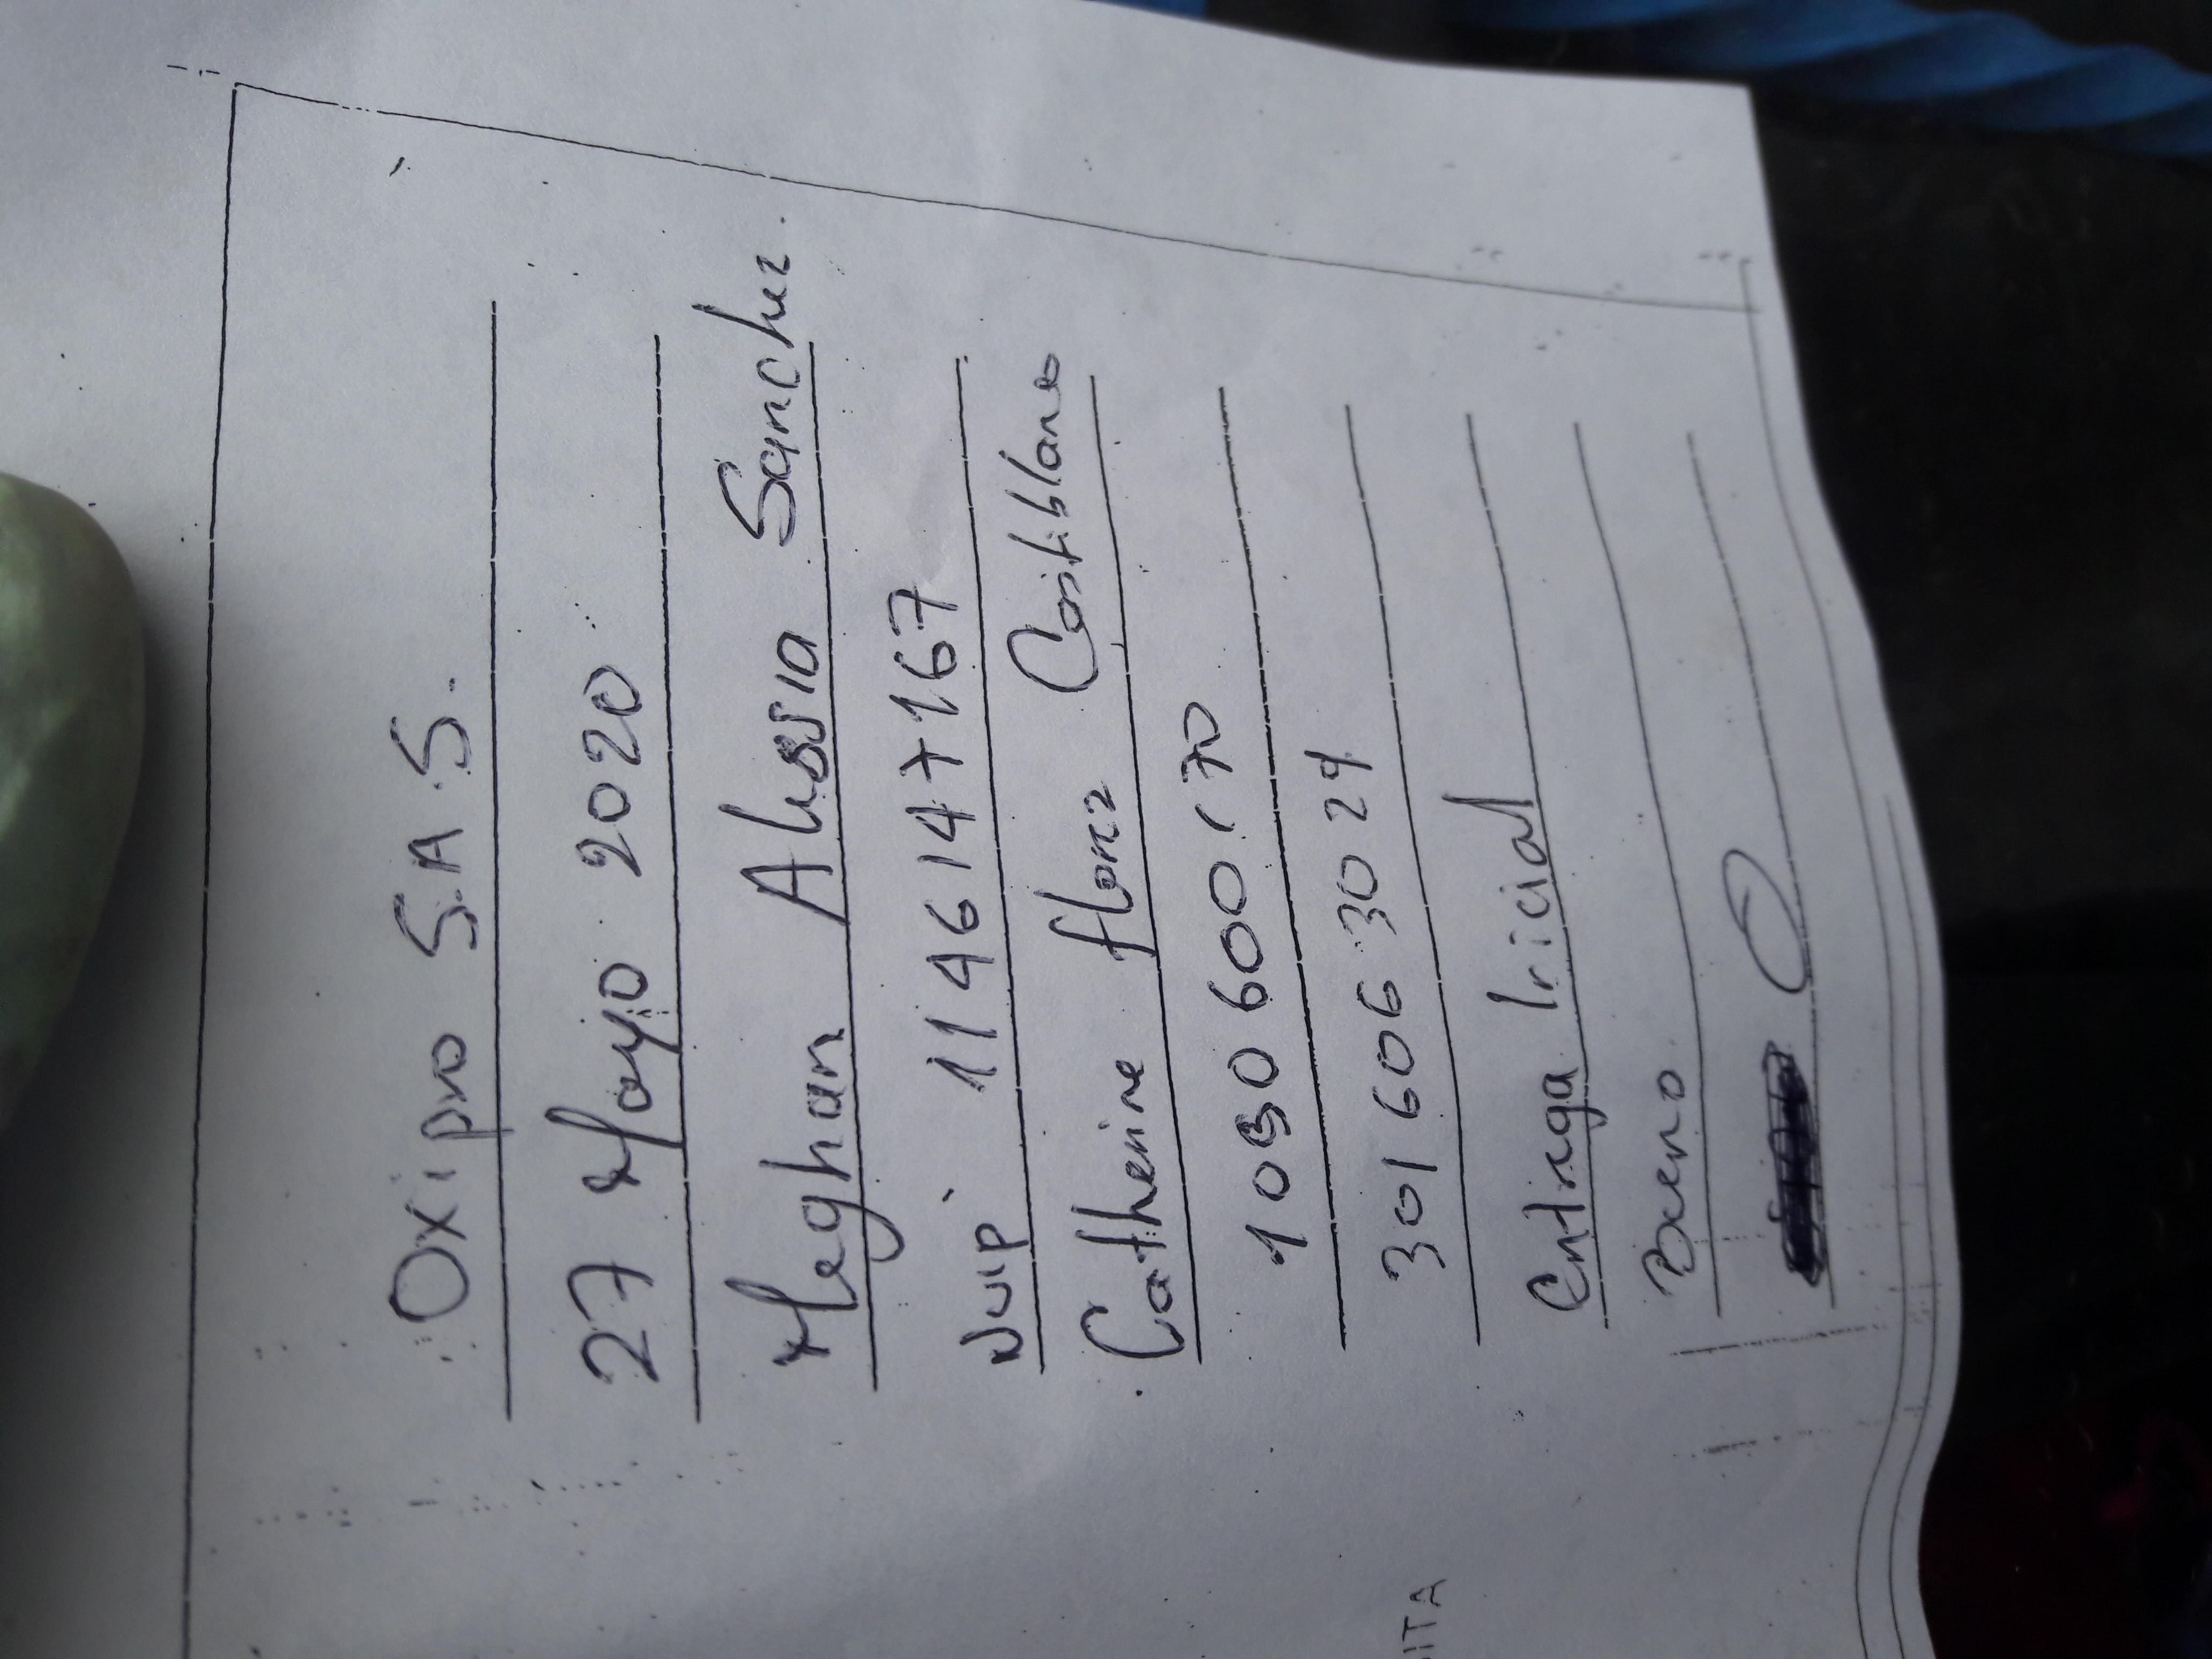 Oxipro S.A.S.
27 Mayo 2020
Meghan Alessia Sanchez.
NUIP 1146147167
Catherine florez Castiblanco
1030600170
301 606 3029
Entrega Inicial
Bueno